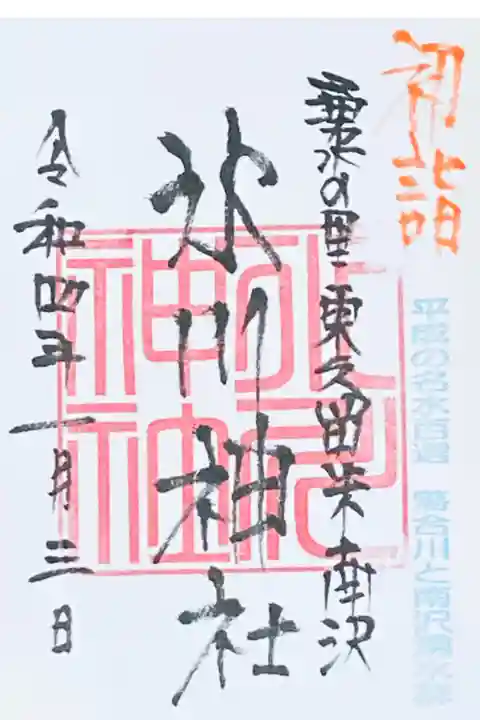 初詣
平成の名水百選 落合川と南沢湧水群
湧水の里東久留米南沢
氷川神社
令和四年一月三日